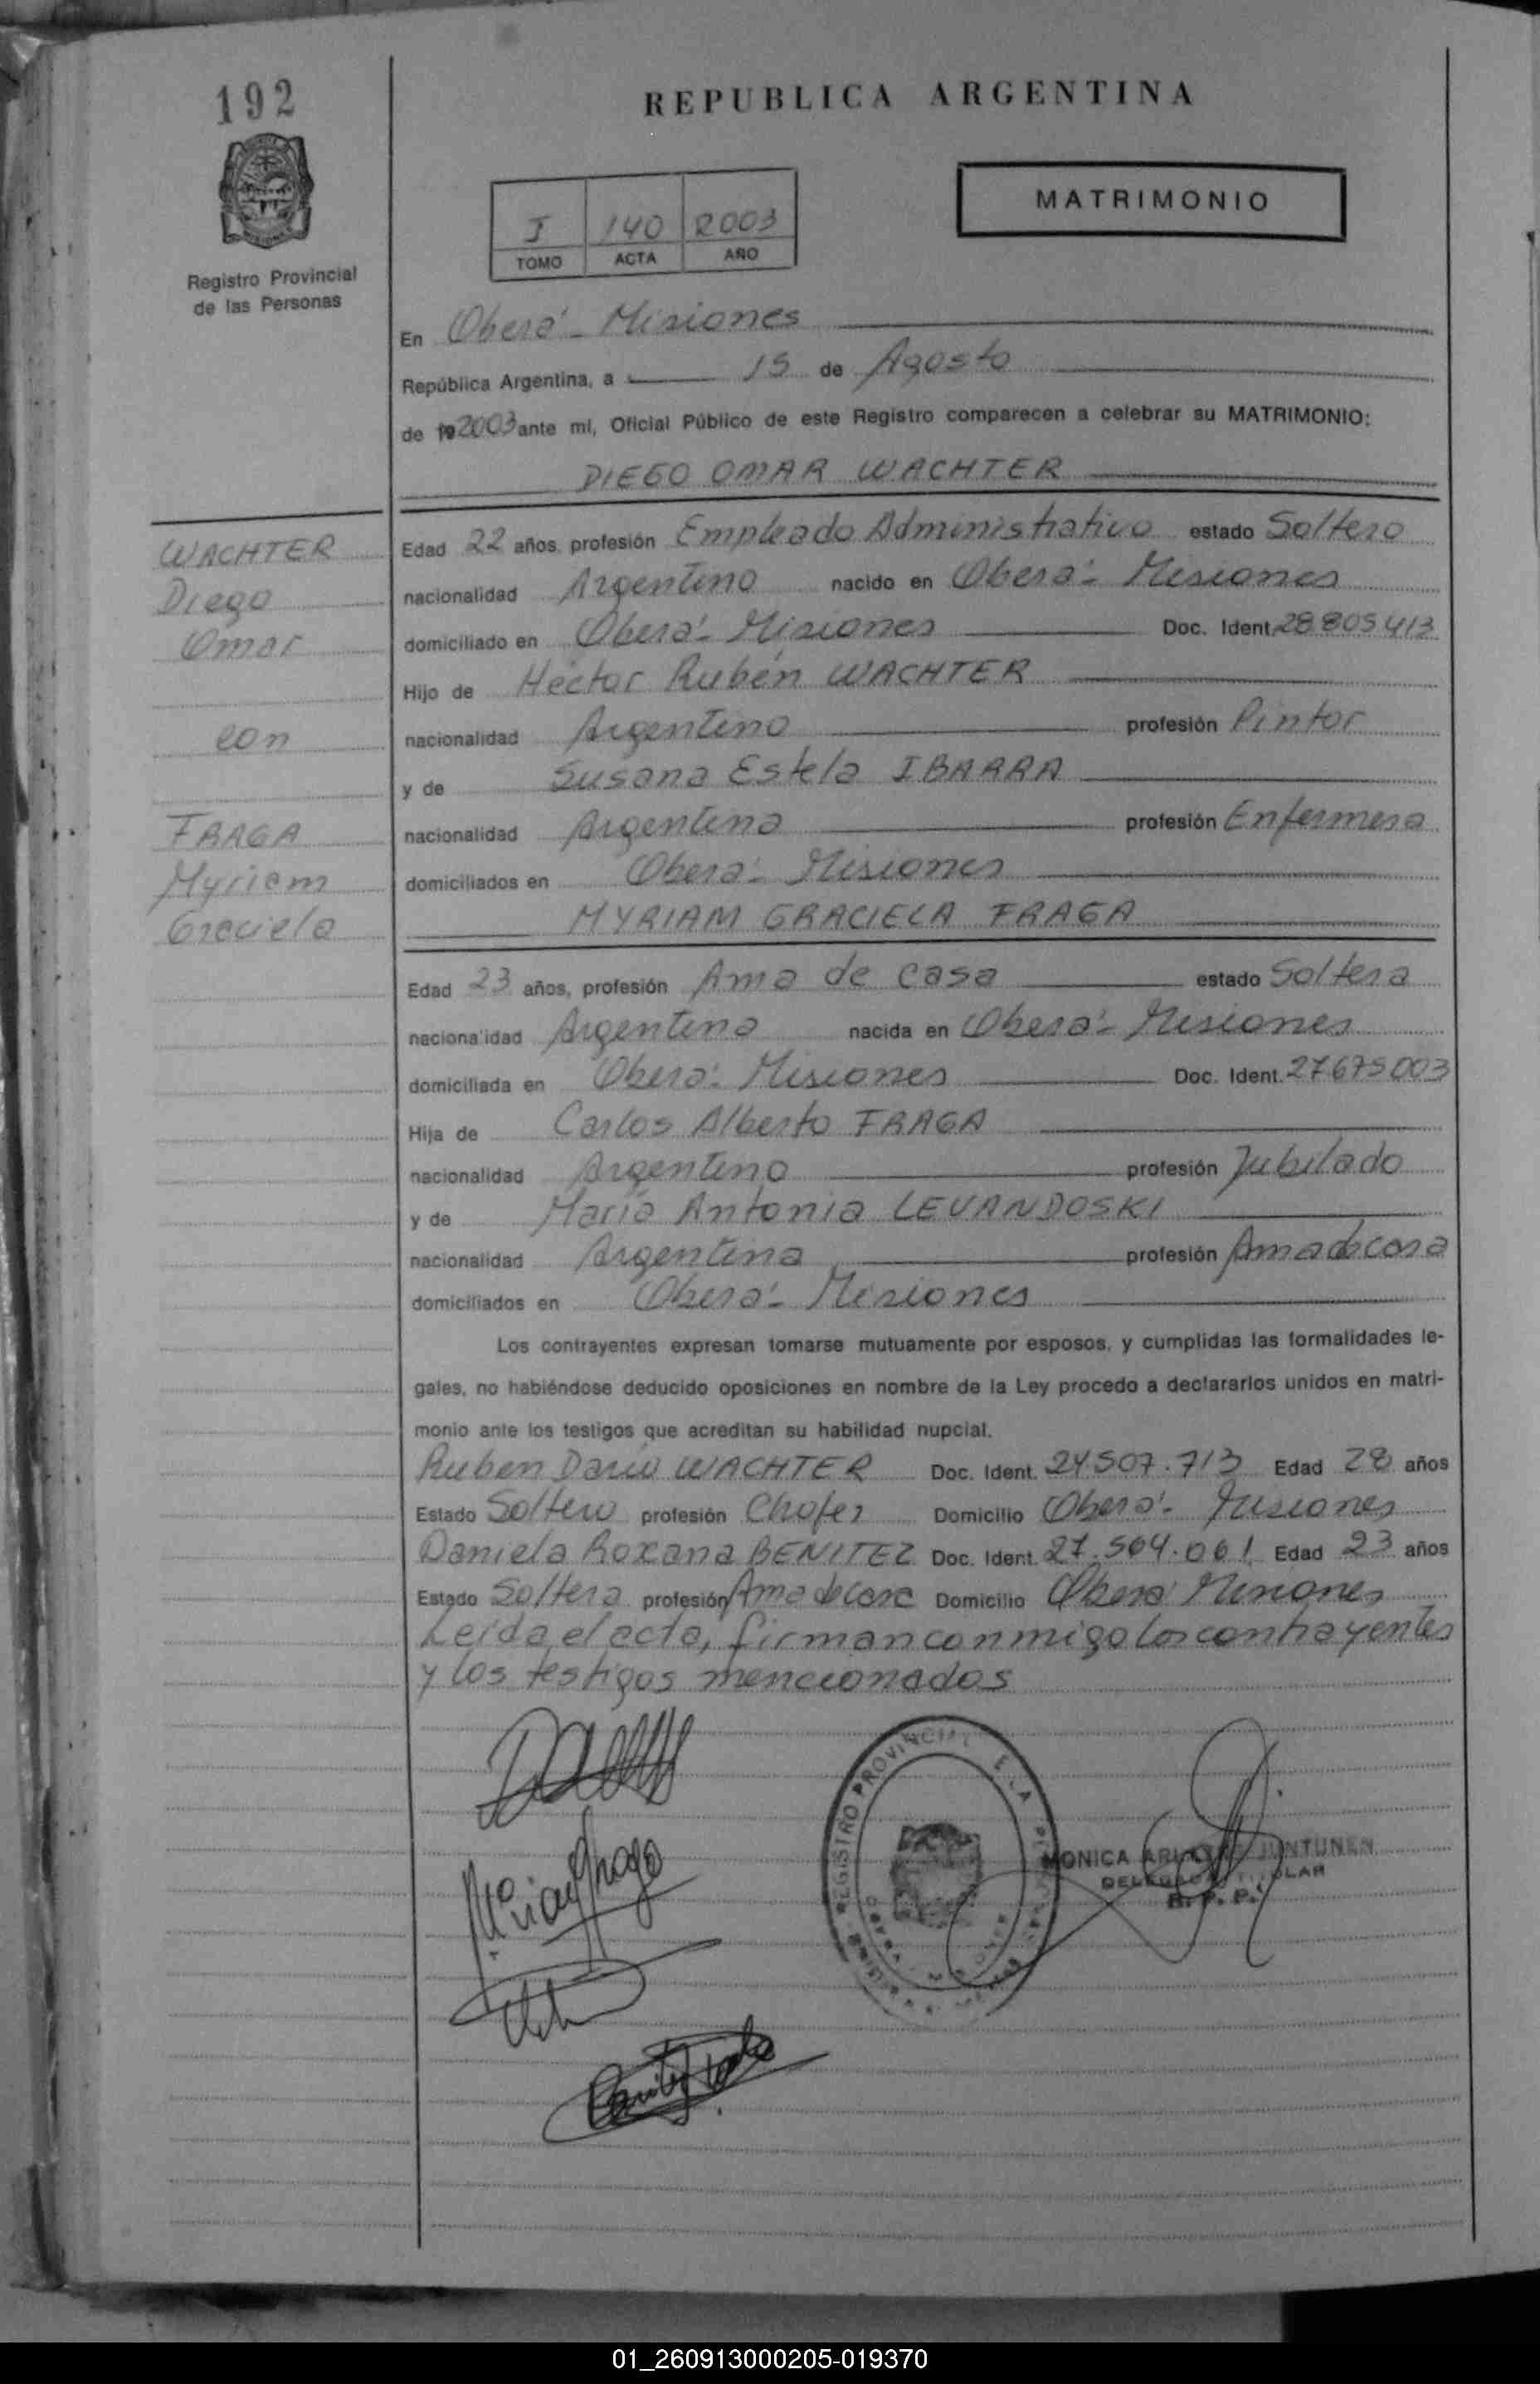 192
REPUBLICA ARGENTINA
MATRIMONIO
I 140 2003
TOMO ACTA AÑO
Registro Provincial
de las Personas
En Oberá - Misiones
República Argentina, a 15 de Agosto
de 19 2003 ante mí, Oficial Público de este Registro comparecen a celebrar su MATRIMONIO:
DIEGO OMAR WACHTER
WACHTER
Diego
Omar
con
FRAGA
Myriam
Graciela
Edad 22 años, profesión Empleado Administrativo estado Soltero
nacionalidad Argentino nacido en Oberá - Misiones
domiciliado en Oberá - Misiones Doc. Ident. 28.805.413
Hijo de Héctor Rubén WACHTER
nacionalidad Argentino profesión Pintor
y de Susana Estela IBARRA
nacionalidad Argentina profesión Enfermera
domiciliados en Oberá - Misiones
MYRIAM GRACIELA FRAGA
Edad 23 años, profesión Ama de casa estado Soltera
nacionalidad Argentina nacida en Oberá - Misiones
domiciliada en Oberá - Misiones Doc. Ident. 27675003
Hija de Carlos Alberto FRAGA
nacionalidad Argentino profesión Jubilado
y de María Antonia LEVANDOSKI
nacionalidad Argentina profesión Ama de casa
domiciliados en Oberá - Misiones
Los contrayentes expresan tomarse mutuamente por esposos, y cumplidas las formalidades le-
gales, no habiéndose deducido oposiciones en nombre de la Ley procedo a declararlos unidos en matri-
monio ante los testigos que acreditan su habilidad nupcial.
Ruben Darío WACHTER Doc. Ident. 24.507.713 Edad 28 años
Estado Soltero profesión Chofer Domicilio Oberá - Misiones
Daniela Roxana BENITEZ Doc. Ident. 27.564.061 Edad 23 años
Estado Soltera profesión Ama de casa Domicilio Oberá Misiones
Leída el acta, firman conmigo los contrayentes
y los testigos mencionados
REGISTRO PROVINCIAL DE LAS PERSONAS
MONICA JUNTUNEN
DELEGADA TITULAR
R. P. P.
01_260913000205-019370